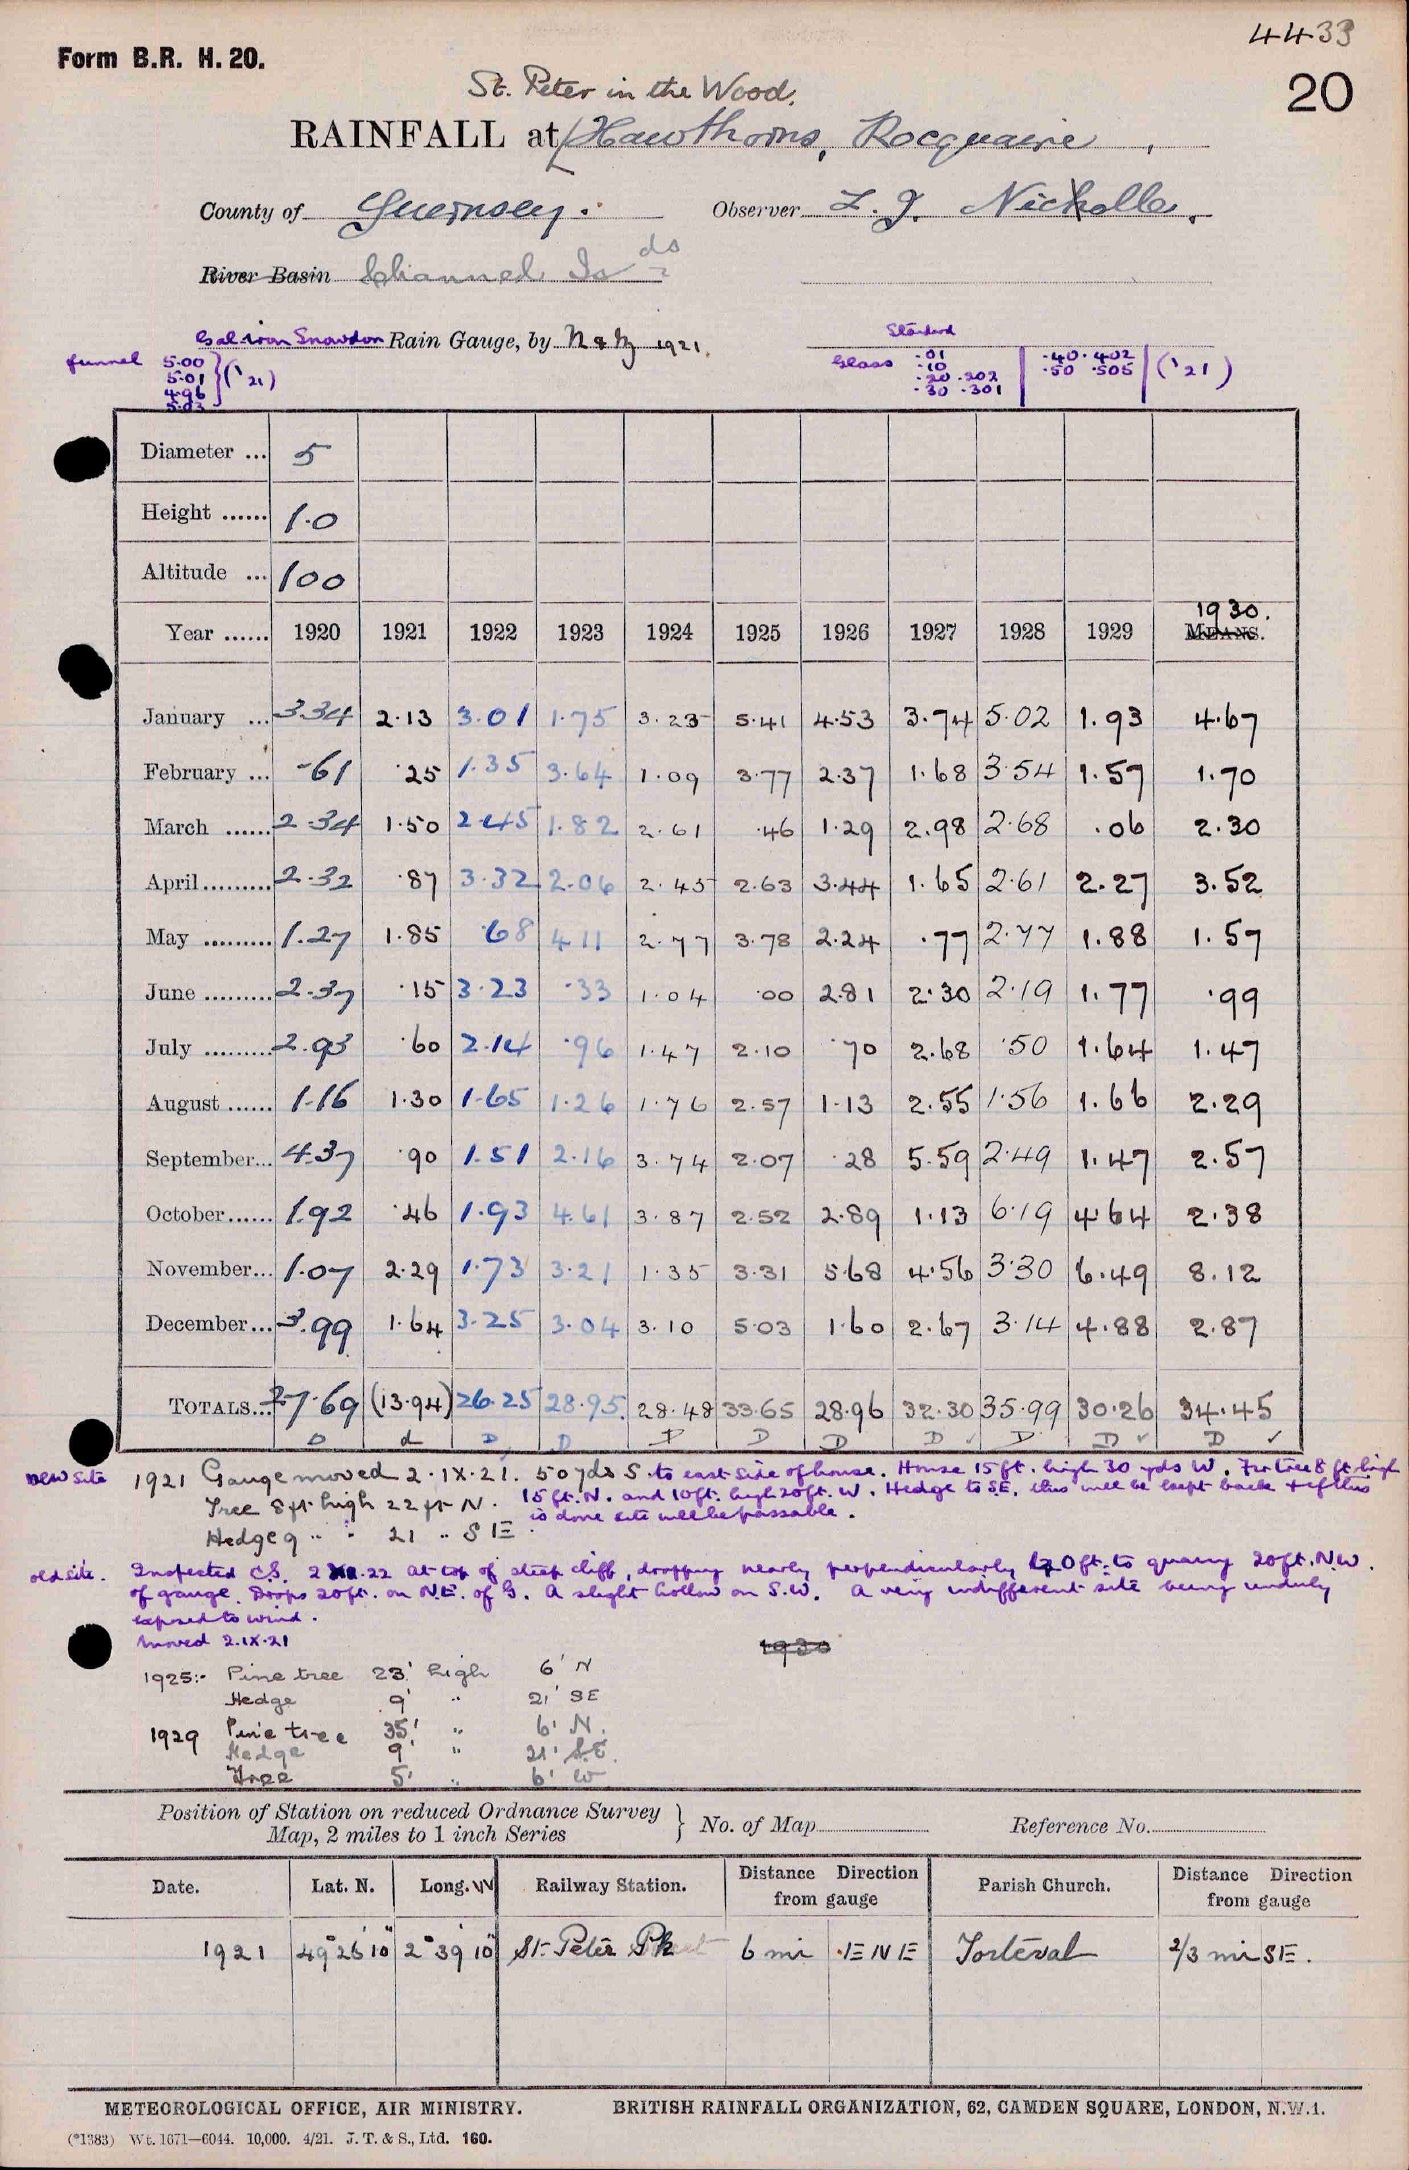 4433
Form B.R. H. 20.
20
St. Peter in the Wood.
RAINFALL at Hawthorns, Rocquaine,
County of Guernsey. Observer L. J. Nicholle.
River Basin Channel Is ds
Gal. iron Snowdon Rain Gauge, by N & Z 1921.
funnel 5.00 5.01 4.96 5.03 ('21)
Standard
Glass .01 .10 .20 .202 .30 .301 .40 .402 .50 .505 ('21)
Diameter ... 5
Height ...... 1.0
Altitude ... 100
1930.
Year ...... 1920 1921 1922 1923 1924 1925 1926 1927 1928 1929 MEANS.
January ... 3.34 2.13 3.01 1.75 3.23 5.41 4.53 3.74 5.02 1.93 4.67
February ... .61 .25 1.35 3.64 1.09 3.77 2.37 1.68 3.54 1.57 1.70
March ...... 2.34 1.50 2.45 1.82 2.61 .46 1.29 2.98 2.68 .06 2.30
April ......... 2.32 .87 3.32 2.06 2.45 2.63 3.44 1.65 2.61 2.27 3.52
May ......... 1.27 1.85 .68 4.11 2.77 3.78 2.24 .77 2.77 1.88 1.57
June ......... 2.37 .15 3.23 .33 1.04 .00 2.81 2.30 2.19 1.77 .99
July ......... 2.93 .60 2.14 .96 1.47 2.10 .70 2.68 .50 1.64 1.47
August ...... 1.16 1.30 1.65 1.26 1.76 2.57 1.13 2.55 1.56 1.66 2.29
September... 4.37 .90 1.51 2.16 3.74 2.07 .28 5.59 2.49 1.47 2.57
October...... 1.92 .46 1.93 4.61 3.87 2.52 2.89 1.13 6.19 4.64 2.38
November... 1.07 2.29 1.73 3.21 1.35 3.31 5.68 4.56 3.30 6.49 8.12
December... 3.99 1.64 3.25 3.04 3.10 5.03 1.60 2.67 3.14 4.88 2.87
TOTALS... 27.69 (13.94) 26.25 28.95 28.48 33.65 28.96 32.30 35.99 30.26 34.45
D d D D D D D D ✓ D D ✓ D ✓
new site 1921 Gauge moved 2.IX.21. 50 yds S. to east side of house. House 15 ft. high 30 yds W. Fir tree 8 ft. high
Tree 8 ft. high 22 ft N. 15 ft. N. and 10 ft. high 20 ft. W. Hedge to S.E. this will be kept back & if this
is done site will be passable.
Hedge 9 " " 21 " S E
old site. Inspected C.S. at top of steep cliff, dropping nearly perpendicularly ft. to quarry 20 ft. N.W.
of gauge. Drops 20 ft. on N.E. of G. A slight hollow on S.W. A very indifferent site being unduly
exposed to wind.
Moved 2.IX.21
1930
1925:- Pine tree 23' high 6' N
Hedge 9' " 21' SE
1929 Pine tree 35' " 6' N.
Hedge 9' " 21' S.E.
Tree 5' " 6' W
Position of Station on reduced Ordnance Survey Map, 2 miles to 1 inch Series } No. of Map Reference No.
Date. Lat. N. Long. W Railway Station. Distance Direction from gauge Parish Church. Distance Direction from gauge
1921 49° 26' 10" 2° 39' 10" St. Peter Pk 6 mi E N E Torteval 2/3 mi SE.
METEOROLOGICAL OFFICE, AIR MINISTRY. BRITISH RAINFALL ORGANIZATION, 62, CAMDEN SQUARE, LONDON, N.W.1.
(*1383) Wt. 1671—6044. 10,000. 4/21. J. T. & S., Ltd. 160.